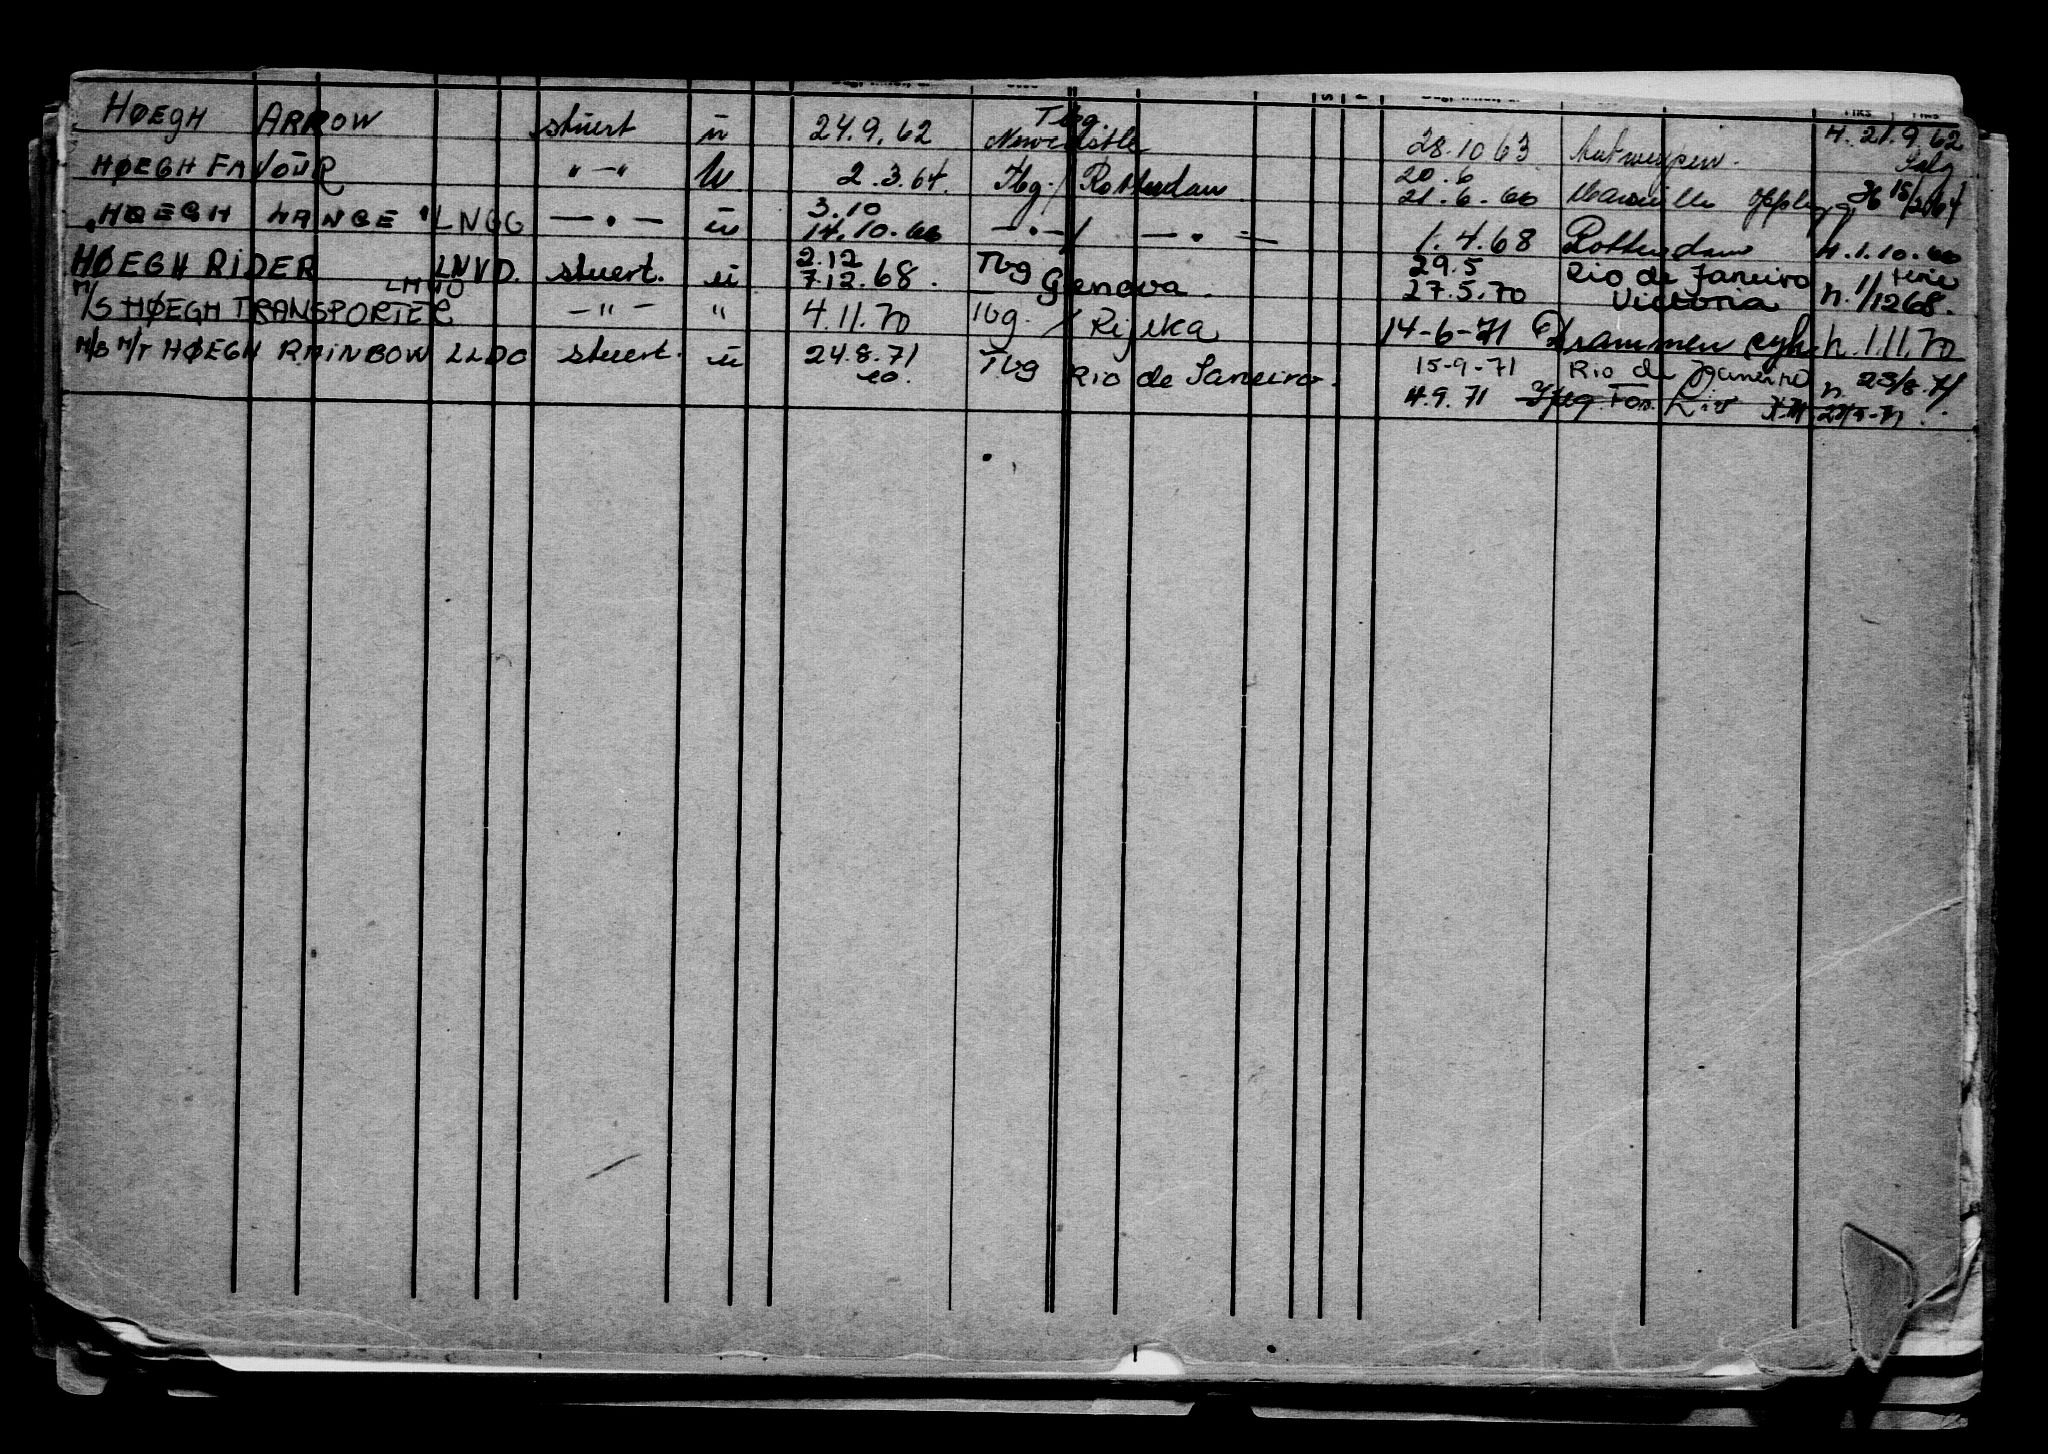 HØEGH ARROW stuert u 24.9.62 Tbg. Newcastle 28.10 63 Antwerpen. H. 21.9.62
HØEGH FAVOUR " — " u 2.3.64. Tbg. / Rotterdam 20.6 21.6.66 Marseille
"HØEGH LANCE" LNGG — " — u 3.10 14.10.66 — " — / — " — 1.4.68 Rotterdam H. 1.10.66
HØEGH RIDER LNVD. stuert. u 2.12 7.12.68. Tbg Genova. 29.5 27.5.70 Rio de Janeiro Victoria n. 1/1268. ferie
M/S HØEGH TRANSPORTER — " — " 4.11.70 Tbg. / Rijeka 14-6-71 Drammen syk. h. 1.11.70
M/S M/T HØEGH RAINBOW LLDO stuert. u 24.8.71 Tbg Rio de Janeiro. 15-9-71 Rio de Janeiro n 23/8.71
4.9.71